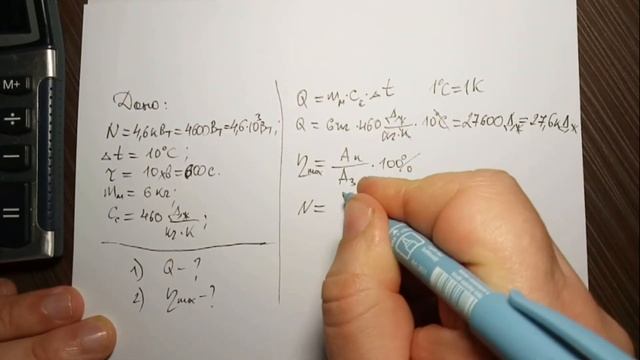 Дано:
N = 4,6 кВт = 4600 Вт = 4,6·10³ Вт;
Δt = 10°C;
τ = 10 хв = 600 с.
mм = 6 кг;
Cс = 460 Дж/кг·К;
1) Q - ?
2) ηmax - ?
Q = mм · Cс · Δt 1°C = 1K
Q = 6кг · 460 Дж/кг·К · 10°C = 27600 Дж = 27,6 кДж
ηmax = Aк/Aз · 100%
N =
M+